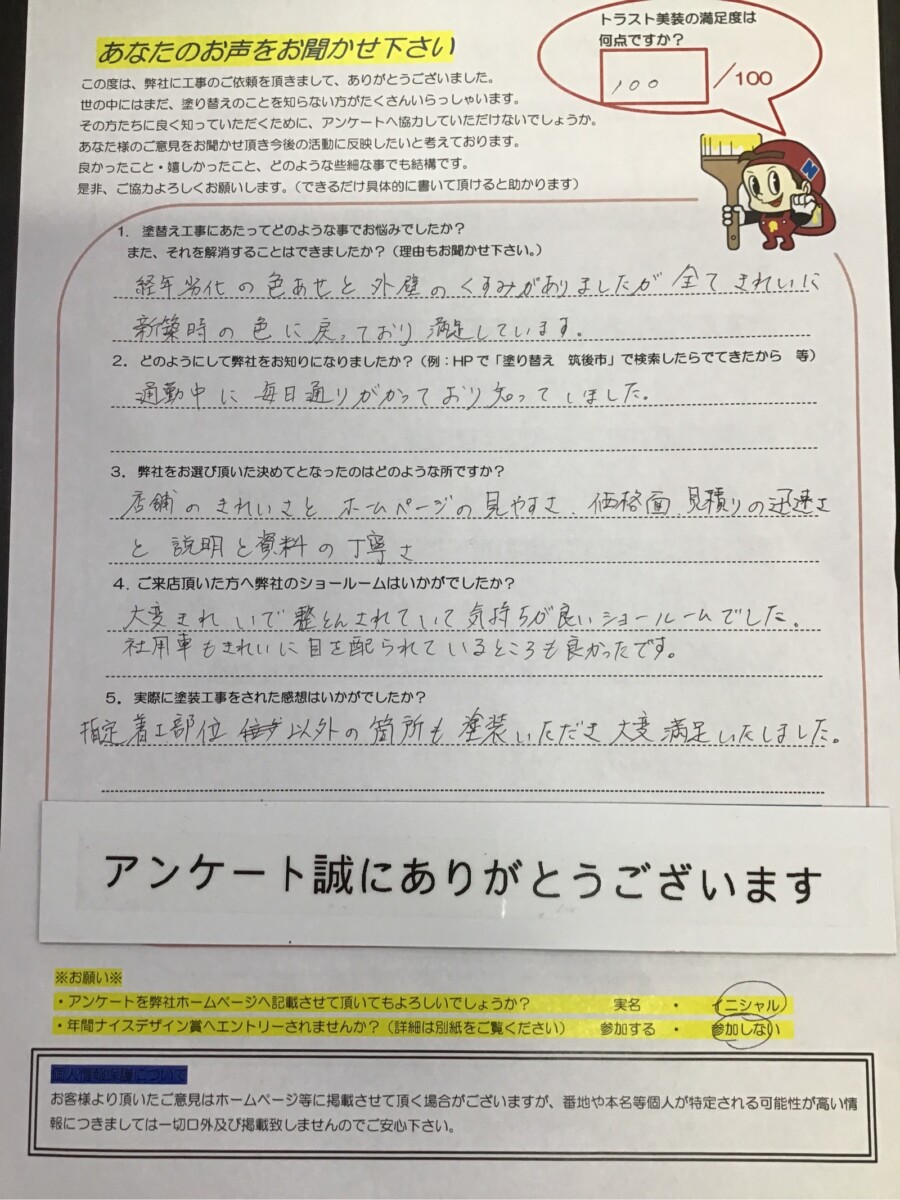 トラスト美装の満足度は
何点ですか？
100 /100
あなたのお声をお聞かせ下さい
この度は、弊社に工事のご依頼を頂きまして、ありがとうございました。
世の中にはまだ、塗り替えのことを知らない方がたくさんいらっしゃいます。
その方たちに良く知っていただくために、アンケートへ協力していただけないでしょうか。
あなた様のご意見をお聞かせ頂き今後の活動に反映したいと考えております。
良かったこと・嬉しかったこと、どのような些細な事でも結構です。
是非、ご協力よろしくお願いします。（できるだけ具体的に書いて頂けると助かります）
1．塗替え工事にあたってどのような事でお悩みでしたか？
また、それを解消することはできましたか？（理由もお聞かせ下さい。）
経年劣化の色あせと外壁のくすみがありましたが全てきれいに
新築時の色に戻っており満足しています。
2．どのようにして弊社をお知りになりましたか？（例：HPで「塗り替え 筑後市」で検索したらでてきたから 等）
通勤中に毎日通りがかっており知ってしました。
3．弊社をお選び頂いた決めてとなったのはどのような所ですか？
店舗のきれいさとホームページの見やすさ、価格面、見積りの迅速さ
と説明と資料の丁寧さ
4．ご来店頂いた方へ弊社のショールームはいかがでしたか？
大変きれいで整とんされていて気持ちが良いショールームでした。
社用車もきれいに目を配られているところも良かったです。
5．実際に塗装工事をされた感想はいかがでしたか？
指定着工部位以外の箇所も塗装いただき大変満足いたしました。
アンケート誠にありがとうございます
※お願い※
・アンケートを弊社ホームページへ記載させて頂いてもよろしいでしょうか？ 実名 ・ イニシャル
・年間ナイスデザイン賞へエントリーされませんか？（詳細は別紙をご覧ください） 参加する ・ 参加しない
個人情報保護について
お客様より頂いたご意見はホームページ等に掲載させて頂く場合がございますが、番地や本名等個人が特定される可能性が高い情
報につきましては一切口外及び掲載致しませんのでご安心下さい。